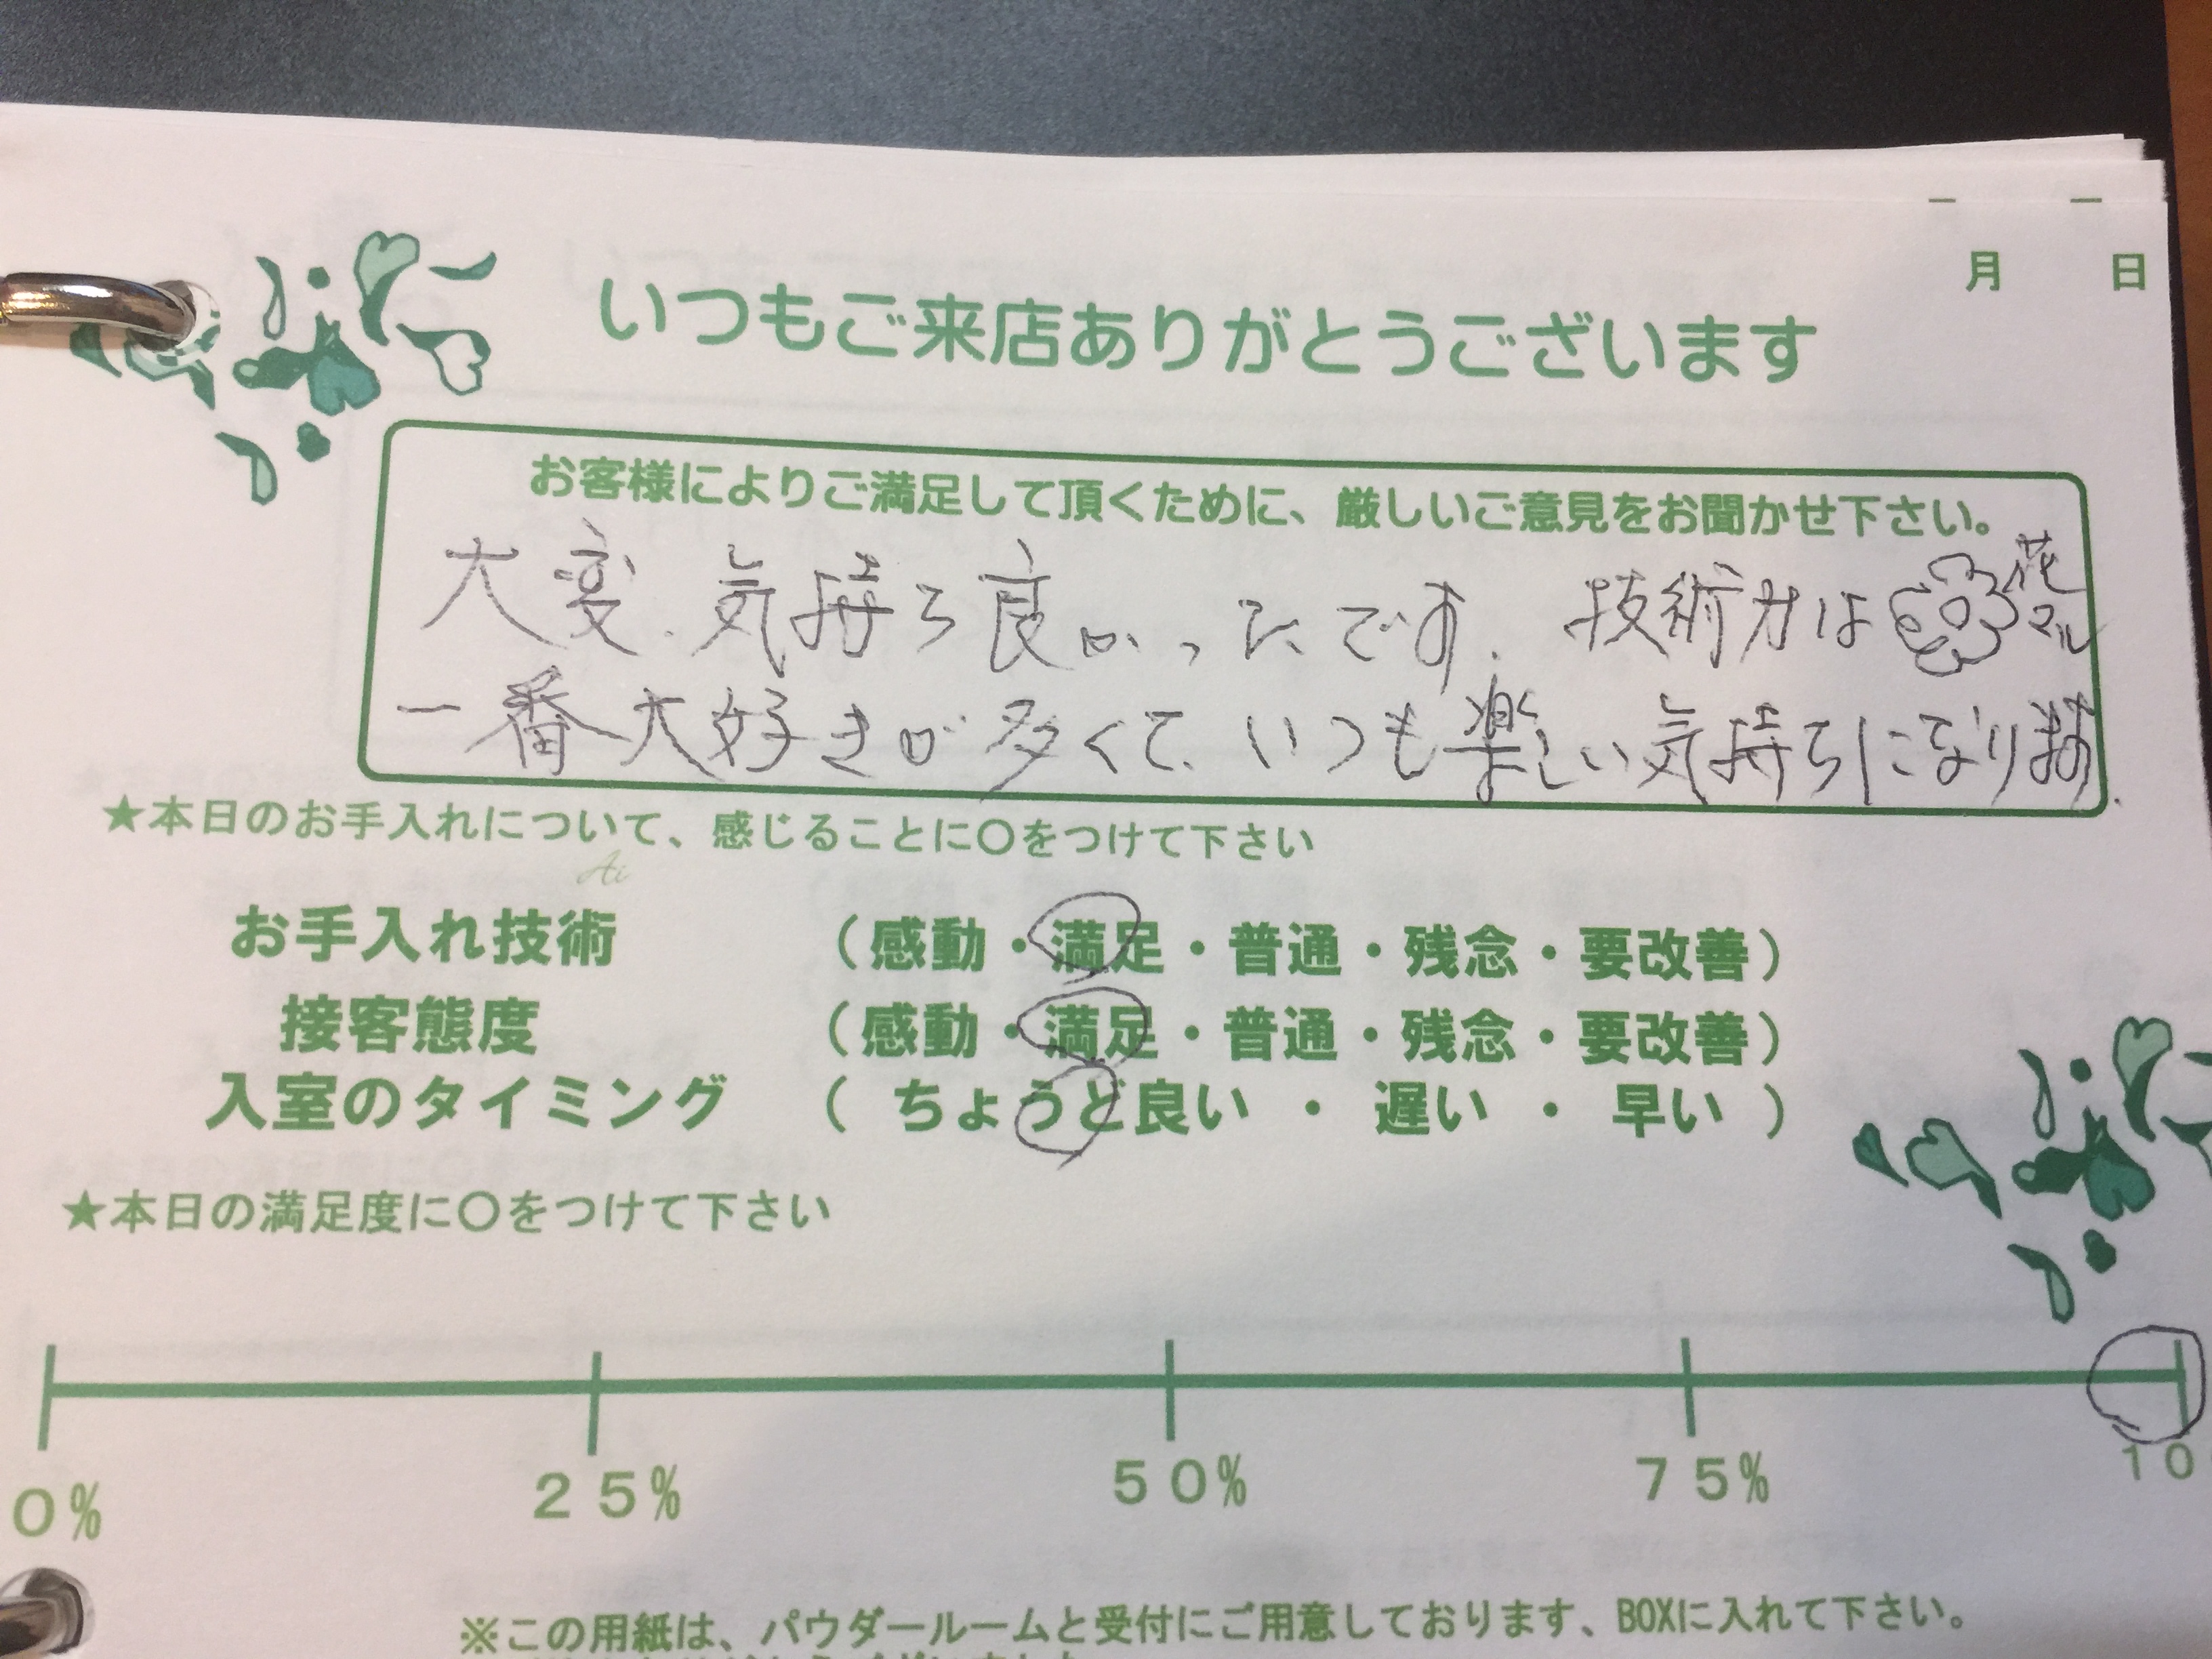 月 日
いつもご来店ありがとうございます
お客様によりご満足して頂くために、厳しいご意見をお聞かせ下さい。
大変、気持ち良かったです。技術力は 花マル
一番大好きが多くて、いつも楽しい気持ちになります。
★本日のお手入れについて、感じることに〇をつけて下さい
Ai
お手入れ技術 （感動・満足・普通・残念・要改善）
接客態度 （感動・満足・普通・残念・要改善）
入室のタイミング （ ちょうど良い ・ 遅い ・ 早い ）
★本日の満足度に〇をつけて下さい
0% 25% 50% 75% 10
※この用紙は、パウダールームと受付にご用意しております、BOXに入れて下さい。